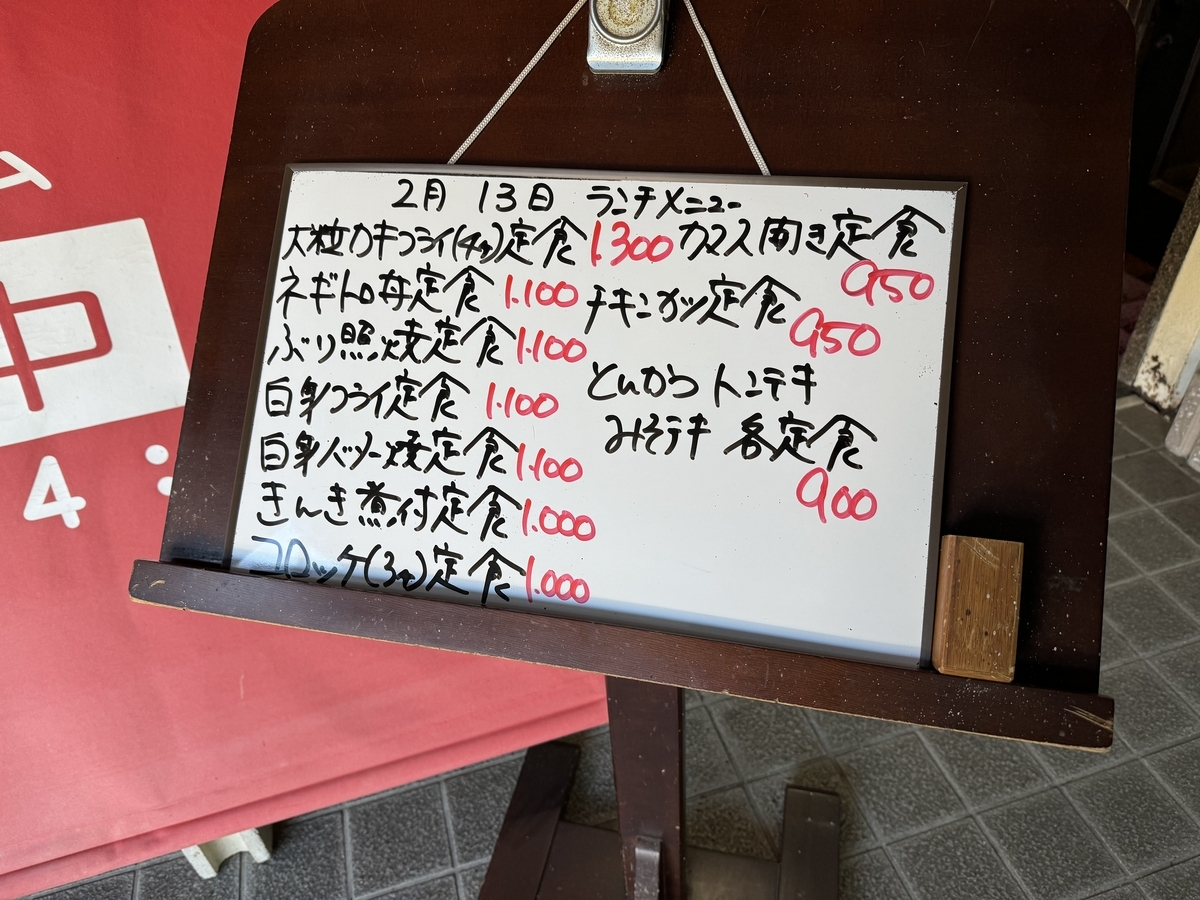 2月 13日 ランチメニュー
大粒カキフライ(4ヶ)定食 1.300
ネギトロ丼定食 1.100
ぶり照焼定食 1.100
白身フライ定食 1.100
白身バター焼定食 1.100
きんき煮付定食 1.000
コロッケ(3ヶ)定食 1.000
カマス開き定食
950
チキンカツ定食
950
とんかつ トンテキ
みそテキ 各定食
900
中
4: